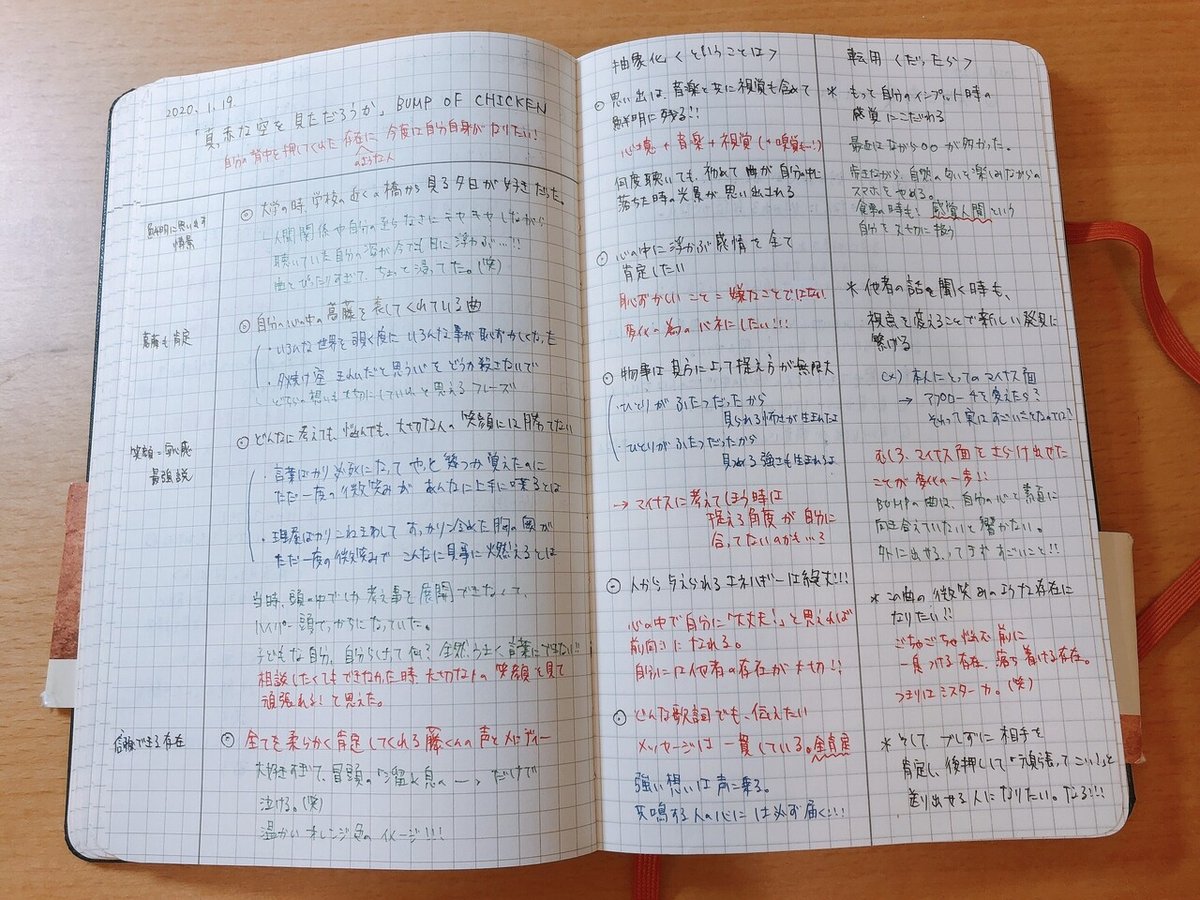 2020.1.19
「真っ赤な空を見ただろうか」BUMP OF CHICKEN
自分の背中を押してくれた存在に今度は自分自身がなりたい!
のような人
鮮明に思い出す
情景
◎ 大学の時、学校の近くの橋から見る夕日が好きだった。
人間関係や自分の至らなさにモヤモヤしながら
聴いていた自分の姿が今でも目に浮かぶ…!!
曲とぴったりすぎて、ちょっと浸ってた。(笑)
葛藤も肯定
◎ 自分の心の中の葛藤を表してくれている曲
・いろんな世界を覗く度に いろんな事が恥ずかしくなった
・夕焼け空 きれいだと思う心を どうか殺さないで
どんな想いも大切にしていいんだと思えるフレーズ
笑顔=安心感
最強説
◎ どんなに考えても、悩んでも、大切な人の笑顔には勝てない
・言葉ばかり必死になって やっと幾つか覚えたのに
ただ一度の微笑みが あんなに上手に喋るとは
・理屈ばかりこねまわして すっかり冷めた胸の奥が
ただ一度の微笑みで こんなに見事に燃えるとは
当時、頭の中でしか考え事を展開できなくて、
ハイパー頭でっかちになっていた。
子どもな自分、自分らしさって何?全然うまく言葉にできない!!
相談したくてもできなかった時、大切な人の笑顔を見て
頑張れる!と思えた。
信頼できる存在
◎ 全てを柔らかく肯定してくれる藤くんの声とメロディー
大好きすぎて、冒頭の「溜め息の―」だけで
泣ける。(笑)
温かいオレンジ色のイメージ!!!
抽象化<ということは>
◎ 思い出は、音楽と共に視覚も含めて
鮮明に残る!!
記憶+音楽+視覚(+嗅覚も…!)
何度聴いても、初めて曲が自分の中に
落ちた時の光景が思い出される
◎ 心の中に浮かぶ感情を全て
肯定したい
恥ずかしいこと=嫌なことではない
変化の為のバネにしたい!!!
◎ 物事は見方によって捉え方が無限大
・ひとりがふたつだったから
見られる怖さが生まれたよ
・ひとりがふたつだったから
見つめる強さも生まれるよ
→ マイナスに考えてしまう時は
捉える角度が自分に
合ってないのかも…?
◎ 人から与えられるエネルギーは絶大!!!
心の中で自分に「大丈夫!」と思えれば
前向きになれる。
自分には他者の存在が大切!!
◎ どんな歌詞でも、伝えたい
メッセージは一貫している。全肯定
強い想いは声に乗る。
共鳴する人の心には必ず届く!!!
転用<だったら>
* もっと自分のインプット時の
感覚にこだわる
最近はながら○○が多かった。
歩きながら、自然の匂いを楽しみながらの
スマホをやめる。
食事の時も!感覚人間という
自分を大切に扱う
* 他者の話を聞く時も、
視点を変えることで新しい発見に
繋げる
(ex) 本人にとってのマイナス面
→ アプローチを変えたら?
それって実はすごいことなのでは?
むしろ、マイナス面をさらけ出せた
ことが変化の一歩!!
BUMPの曲は、自分の心と素直に
向き合えていないと響かない。
外に出せる、ってまずすごいこと!!
* この曲の微笑みのような存在に
なりたい!!
ごちゃごちゃ悩む前に
一息つける存在、落ち着ける存在。
つまりはミスター力。(笑)
* そして、ブレずに相手を
肯定し、後押しして「頑張ってこい!」と
送り出せる人になりたい。なる!!!